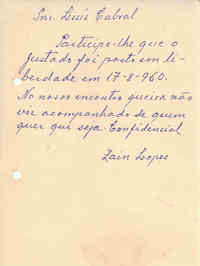 Snr. Luís Cabral
Participo-lhe que o
Justado foi posto em li-
berdade em 17-8-960.
No nosso encontro queira não
vir acompanhado de quem
quer que seja. Confidencial
Zain Lopes